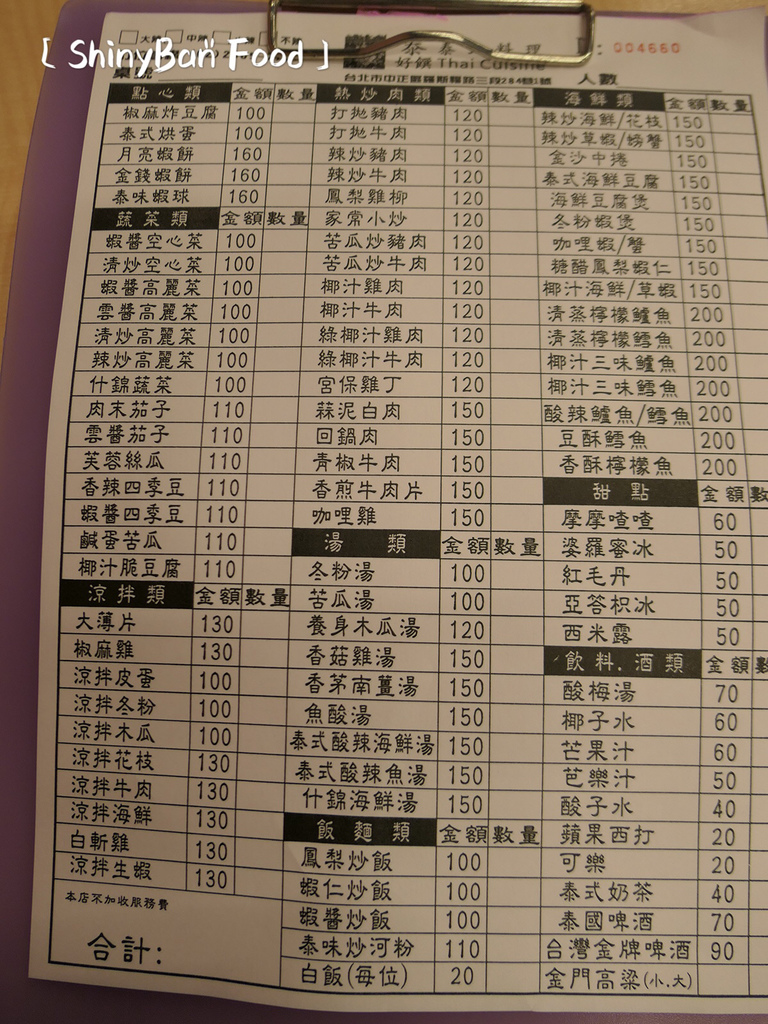 [ ShinyBan Food ]
料理 004660
好饌 Thai Cuisine
人數
點心類 金額 數量
椒麻炸豆腐 100
泰式烘蛋 100
月亮蝦餅 160
金錢蝦餅 160
泰味蝦球 160
蔬菜類 金額 數量
蝦醬空心菜 100
清炒空心菜 100
蝦醬高麗菜 100
雲醬高麗菜 100
清炒高麗菜 100
辣炒高麗菜 100
什錦蔬菜 100
肉末茄子 110
雲醬茄子 110
芙蓉絲瓜 110
香辣四季豆 110
蝦醬四季豆 110
鹹蛋苦瓜 110
椰汁脆豆腐 110
涼拌類 金額 數量
大薄片 130
椒麻雞 130
涼拌皮蛋 100
涼拌冬粉 100
涼拌木瓜 100
涼拌花枝 130
涼拌牛肉 130
涼拌海鮮 130
白斬雞 130
涼拌生蝦 130
本店不加收服務費
合計:
熱炒肉類 金額 數量
打拋豬肉 120
打拋牛肉 120
辣炒豬肉 120
辣炒牛肉 120
鳳梨雞柳 120
家常小炒 120
苦瓜炒豬肉 120
苦瓜炒牛肉 120
椰汁雞肉 120
椰汁牛肉 120
綠椰汁雞肉 120
綠椰汁牛肉 120
宮保雞丁 120
蒜泥白肉 150
回鍋肉 150
青椒牛肉 150
香煎牛肉片 150
咖哩雞 150
湯類 金額 數量
冬粉湯 100
苦瓜湯 100
養身木瓜湯 120
香菇雞湯 150
香茅南薑湯 150
魚酸湯 150
泰式酸辣海鮮湯 150
泰式酸辣魚湯 150
什錦海鮮湯 150
飯麵類 金額 數量
鳳梨炒飯 100
蝦仁炒飯 100
蝦醬炒飯 100
泰味炒河粉 110
白飯(每位) 20
海鮮類 金額 數量
辣炒海鮮/花枝 150
辣炒草蝦/螃蟹 150
金沙中捲 150
泰式海鮮豆腐 150
海鮮豆腐煲 150
冬粉蝦煲 150
咖哩蝦/蟹 150
糖醋鳳梨蝦仁 150
椰汁海鮮/草蝦 150
清蒸檸檬鱸魚 200
清蒸檸檬鱈魚 200
椰汁三味鱸魚 200
椰汁三味鱈魚 200
酸辣鱸魚/鱈魚 200
豆酥鱈魚 200
香酥檸檬魚 200
甜點 金額 數
摩摩喳喳 60
婆羅蜜冰 50
紅毛丹 50
亞答枳冰 50
西米露 50
飲料.酒類 金額 數
酸梅湯 70
椰子水 60
芒果汁 60
芭樂汁 50
酸子水 40
蘋果西打 20
可樂 20
泰式奶茶 40
泰國啤酒 70
台灣金牌啤酒 90
金門高粱(小.大)